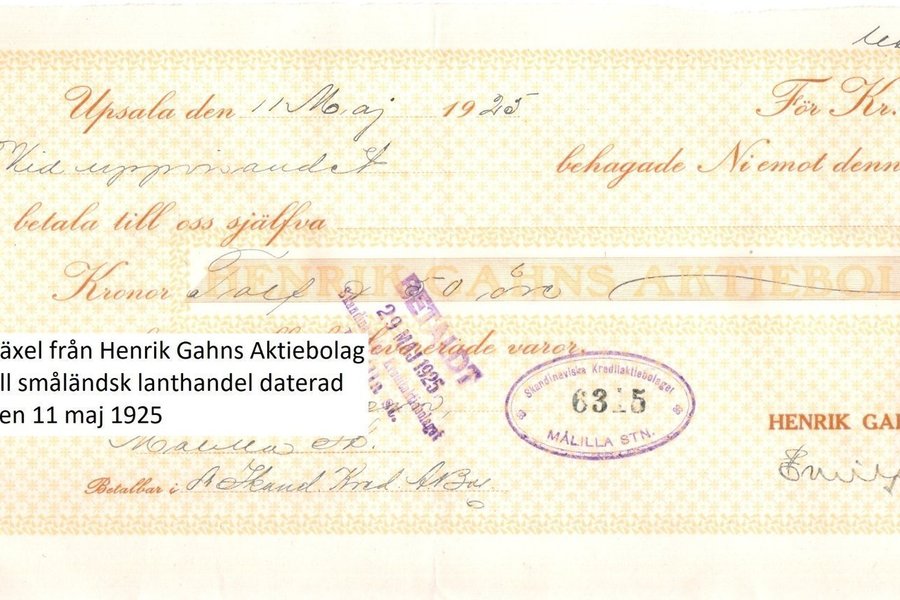 Upsala den 11 Maj 1925 För Kr.
Vid uppvisandet behagade Ni emot denn
betala till oss själfva
Kronor Tolf & 50 öre
HENRIK GAHNS AKTIEBOL
levererade varor.
BETALDT
29 MAJ 1925
Skandinaviska Kreditaktiebolaget
6315
MÅLILLA STN.
äxel från Henrik Gahns Aktiebolag
ll småländsk lanthandel daterad
en 11 maj 1925
HENRIK GA
Målilla
Betalbar i Skand Kred